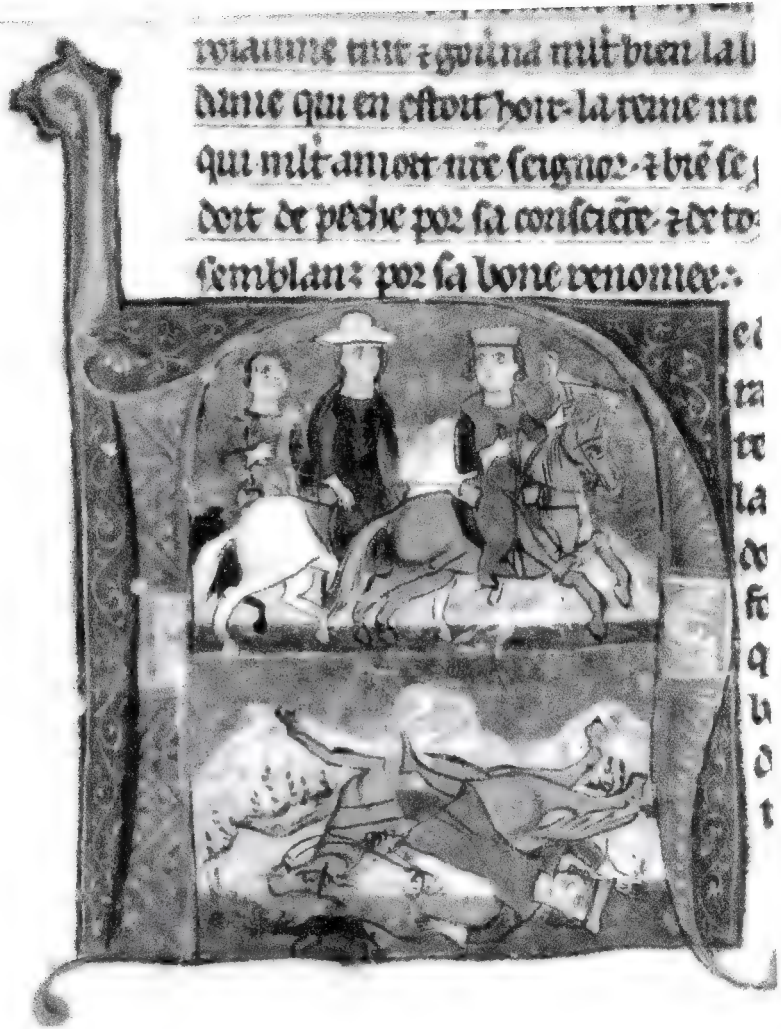 roiaume tint ⁊ gou̅na ml̅t bien la b
dame qui en estoit hoir· la reine me
qui ml̅t amoit nr̅e seignor· ⁊ bie̅ se g
doit de peche por sa conscie̅ce· ⁊ de to
semblanz por sa bone renomee·:·
el
ra
te
la
do
st
q
li
d
t